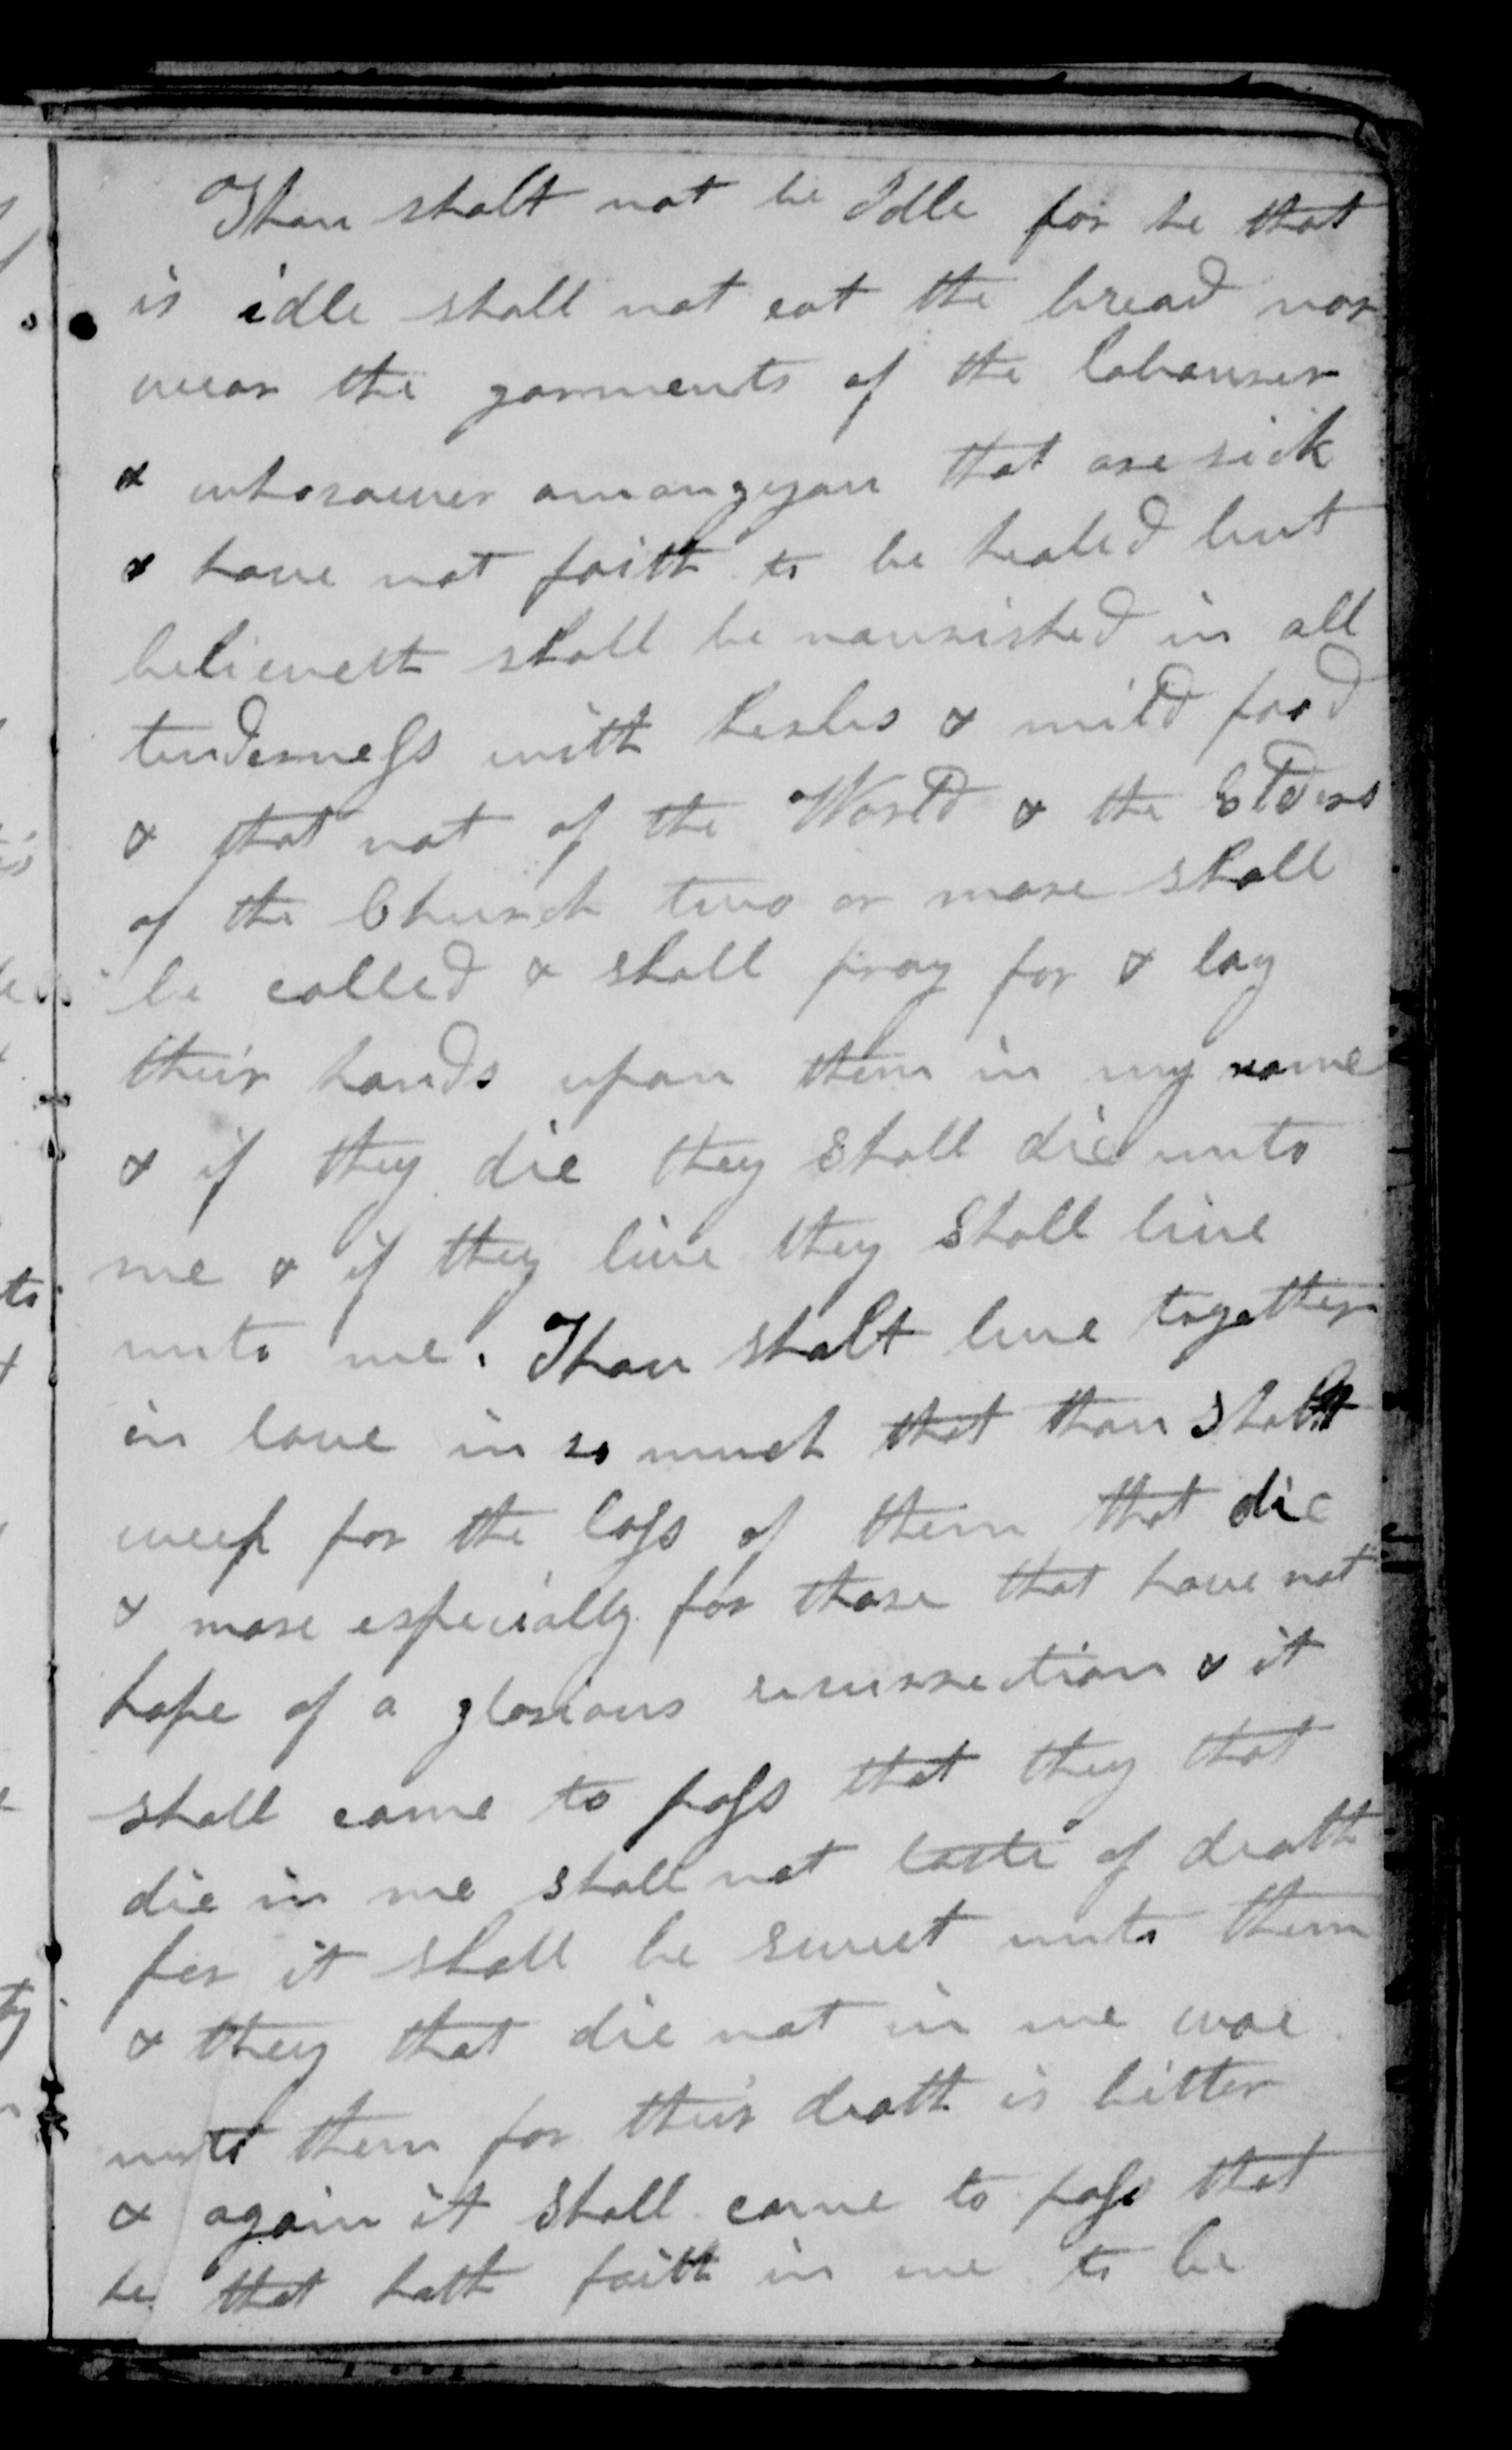 Thou shalt not be Idle for he that
is idle shall not eat the bread nor
wear the garments of the labourer
& whosoever among you that are sick
& have not faith to be healed but
believeth shall be nourished in all
tenderness with herbs & mild food
& that not of the World & the Elders
of the Church two or more shall
be called & shall pray for & lay
their hands upon them in my name
& if they die they shall die unto
me & if they live they shall live
unto me. Thou shalt live together
in love in so much that thou shalt
weep for the loss of them that die
& more especially for those that have not
hope of a glorious resurrection & it
shall come to pass that they that
die in me shall not taste of death
for it shall be sweet unto them
& they that die not in me woe
unto them for their death is bitter
& again it shall come to pass that
he that hath faith in me to be